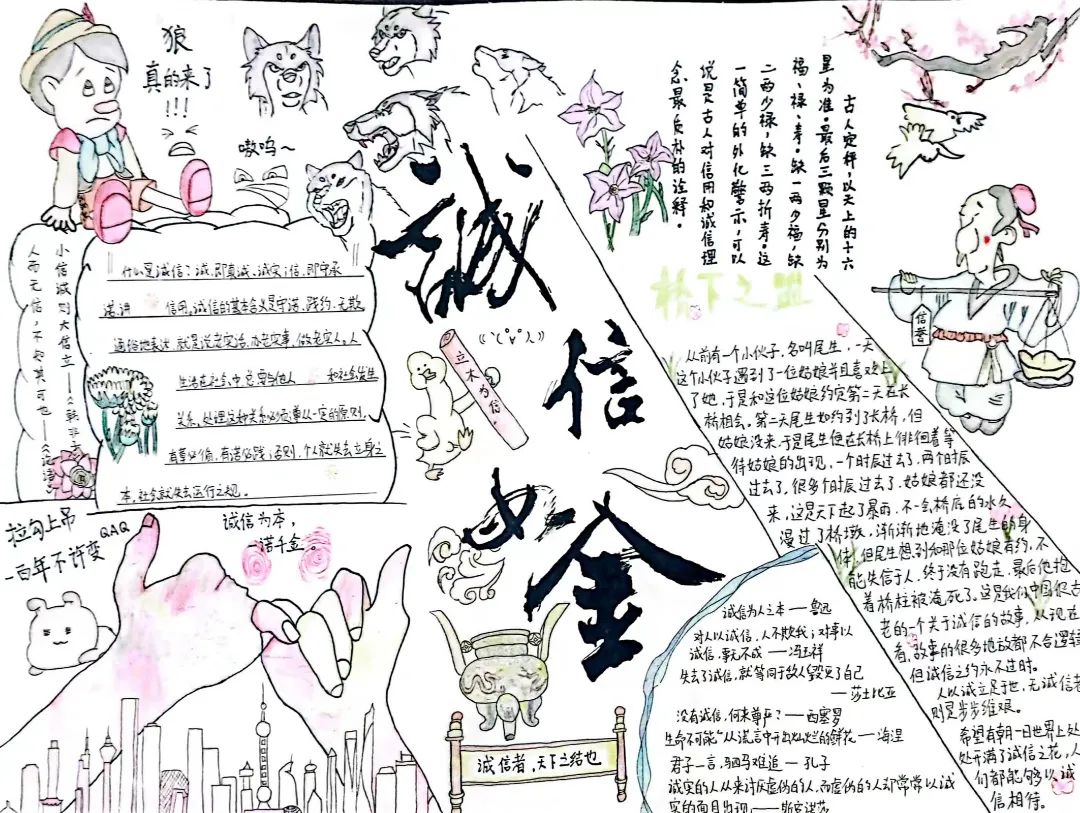 狼
真的来了
!!!
嗷呜~
小信诚则大信立——《韩非子》
人而无信，不知其可也——《论语》
什么是诚信？诚，即真诚、诚实；信，即守承
诺、讲信用。诚信的基本含义是守诺、践约、无欺
通俗地表述，就是说老实话、办老实事、做老实人。人
生活在社会中，总要与他人和社会发生
关系。处理这种关系必须遵从一定的原则，
有章必循，有诺必践；否则，个人就失去立身之
本，社会就失去运行之规。
誠
信
如
金
立木为信
古人定秤，以天上的十六
星为准。最后三颗星分别为
福、禄、寿。缺一两少福，缺
二两少禄，缺三两折寿。这
一简单的外化警示，可以
说是古人对信用和诚信理
念最质朴的诠释。
桥下之盟
信誉
从前有一个小伙子，名叫尾生，一天
这个小伙子遇到了一位姑娘并且喜欢上
了她，于是和这位姑娘约定第二天在长
桥相会。第二天尾生如约到了长桥，但
姑娘没来，于是尾生便在长桥上徘徊着等
待姑娘的出现，一个时辰过去了，两个时辰
过去了，很多个时辰过去了，姑娘都还没
来，这是天下起了暴雨，不一会桥底的水久
漫过了桥墩，渐渐地淹没了尾生的身
体，但尾生想到和那位姑娘有约，不
能失信于人，终于没有跑走，最后他抱
着桥柱被淹死了。这是我们中国很古
老的一个关于诚信的故事，从现在
看，故事的很多地放都不合逻辑
但诚信之约永不过时。
人以诚立足于世，无诚信者
则是步步维艰。
希望有朝一日世界上处
处开满了诚信之花，人
们都能够以诚
信相待。
拉勾上吊
一百年不许变
QAQ
诚信为本，
一诺千金
诚信者，天下之结也
诚信为人之本——鲁迅
对人以诚信，人不欺我；对事以
诚信，事无不成——冯玉祥
失去了诚信，就等同于敌人毁灭了自己
——莎士比亚
没有诚信，何来尊严？——西塞罗
生命不可能“从谎言中开出灿烂的鲜花——海涅
君子一言，驷马难追——孔子
诚实的人从来讨厌虚伪的人，而虚伪的人却常常以诚
实的面目出现——斯宾诺莎